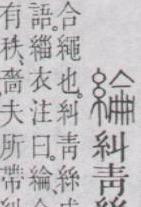 綸糾青絲
合繩也。糾青絲
語。緇衣注曰。綸
有秩、嗇夫所帶